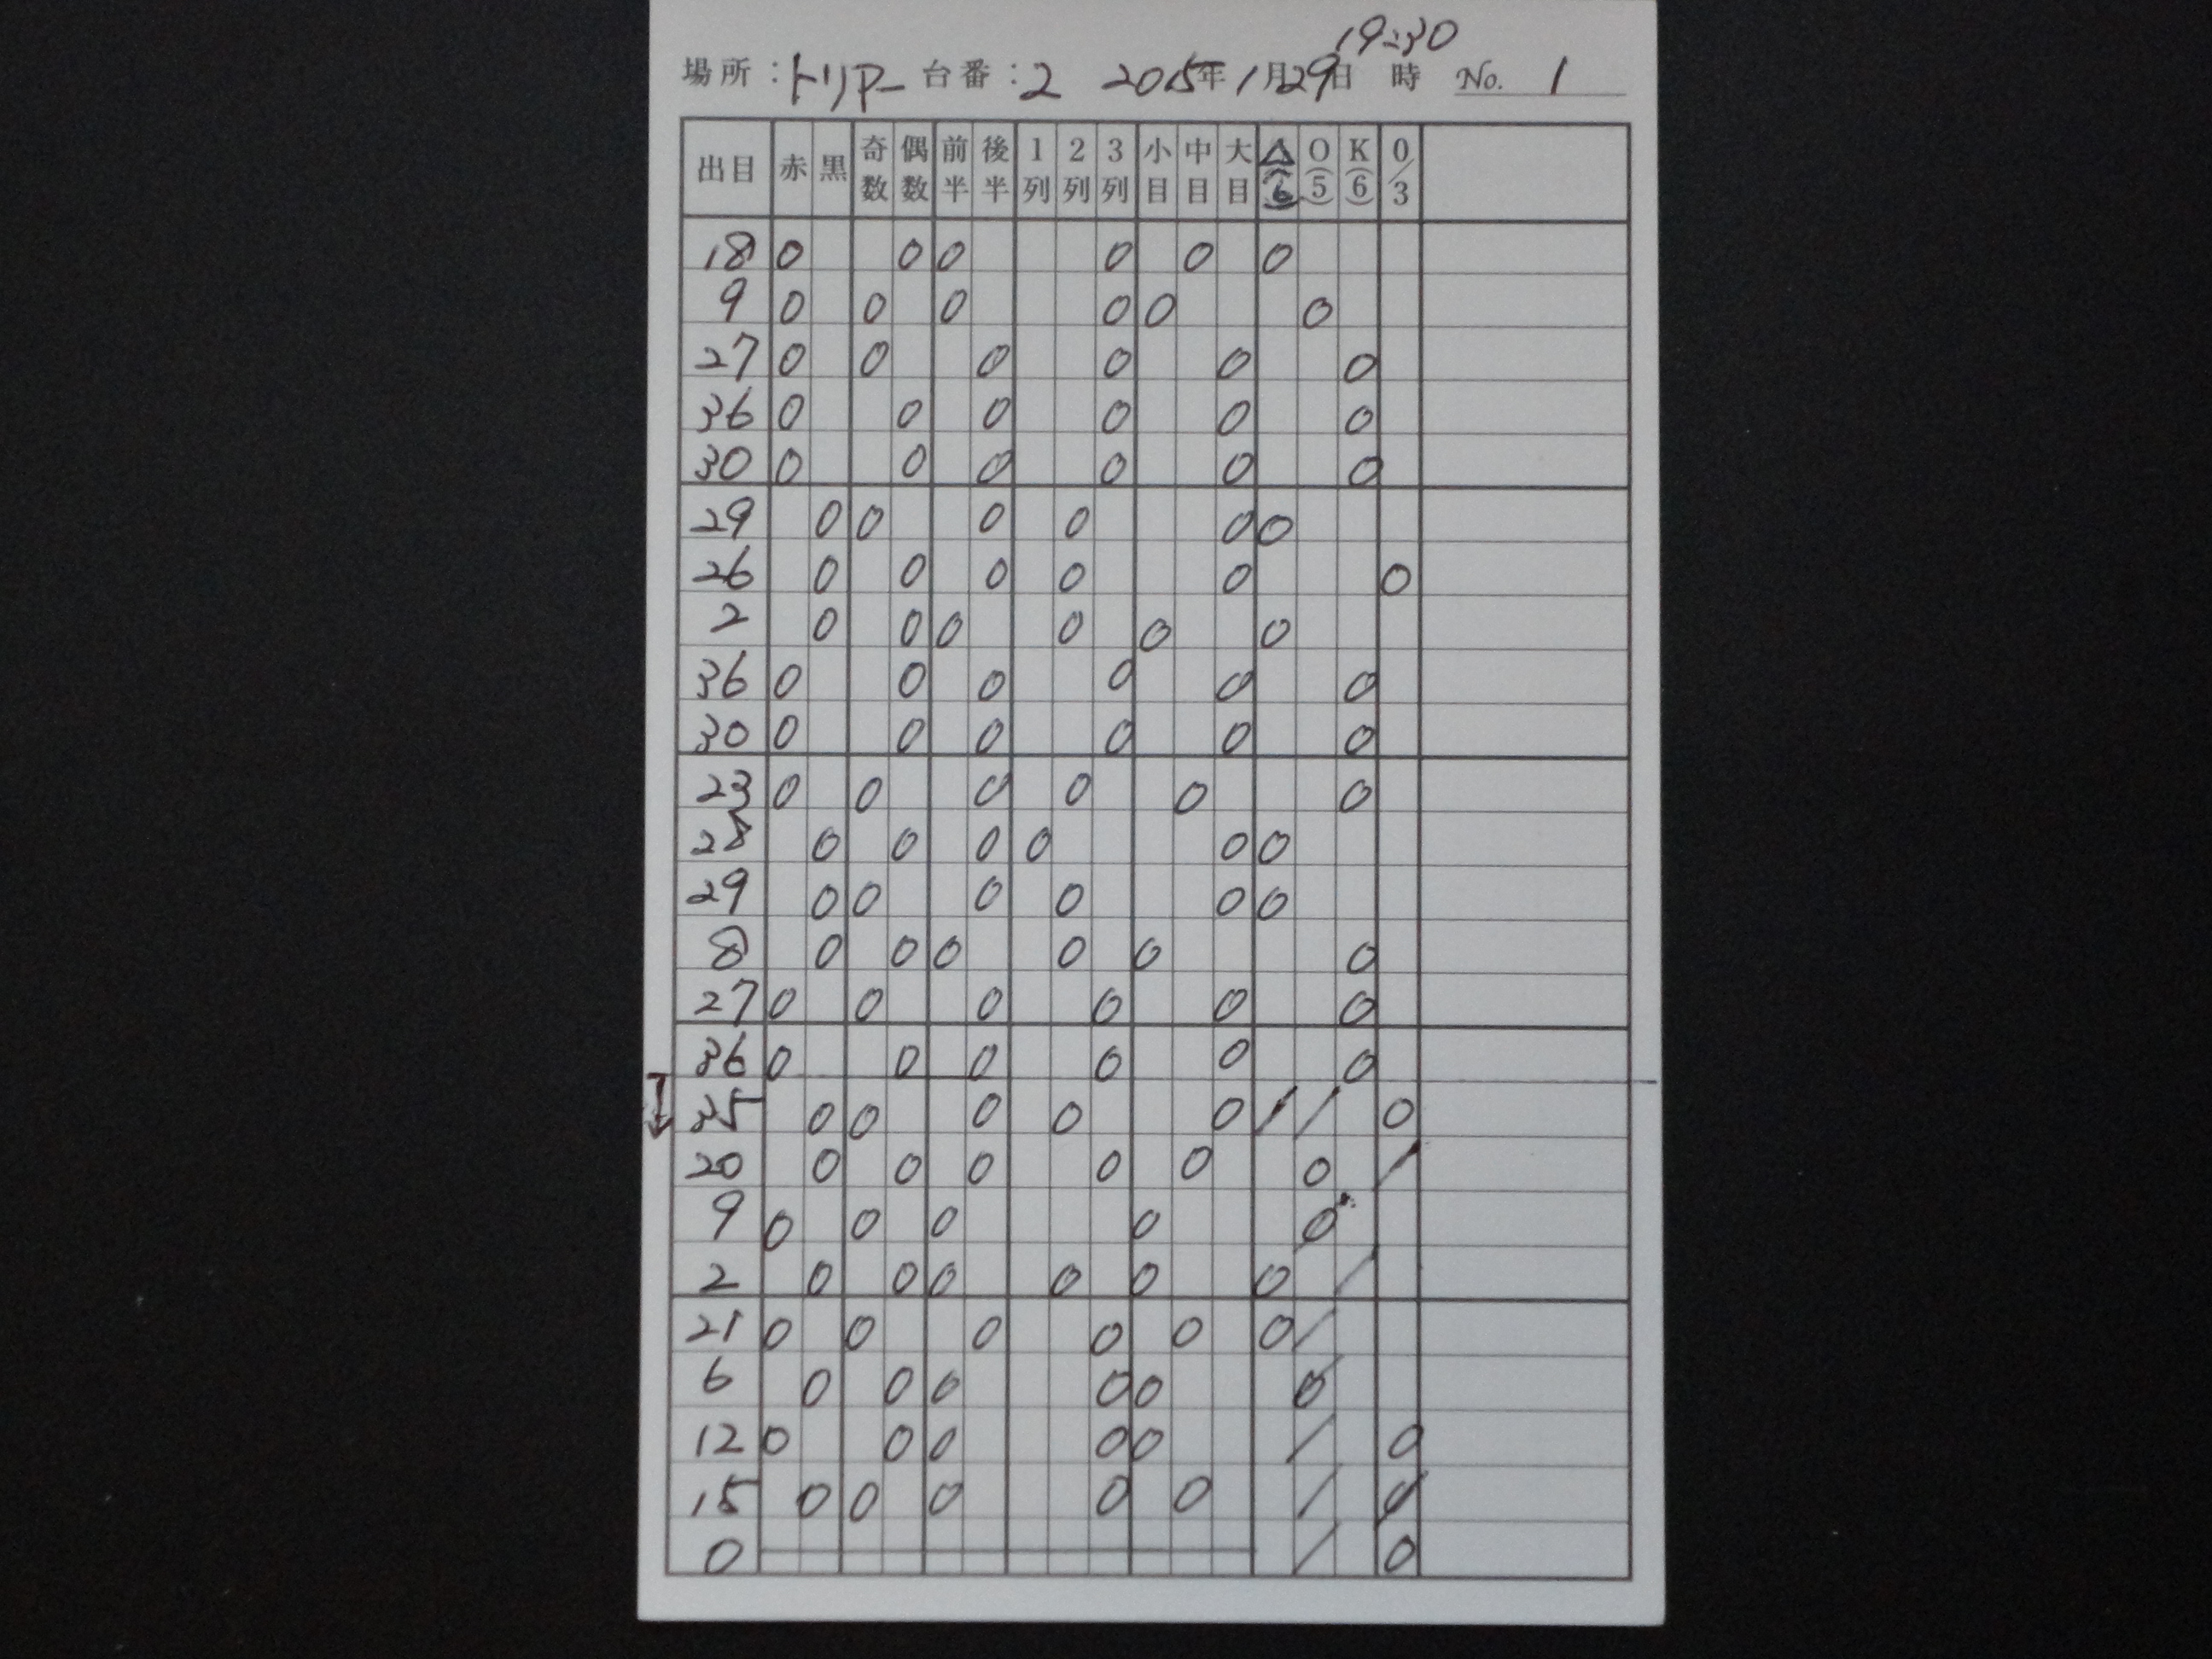 19:30
場所:トリアー 台番:2 2015年1月29日 時 No. 1
出目 赤 黒 奇数 偶数 前半 後半 1列 2列 3列 小目 中目 大目 △(6) O(5) K(6) 0/3
18 0 0 0 0 0 0
9 0 0 0 0 0 0
27 0 0 0 0 0 0
36 0 0 0 0 0 0
30 0 0 0 0 0 0
29 0 0 0 0 0 0
26 0 0 0 0 0 0
2 0 0 0 0 0 0
36 0 0 0 0 0 0
30 0 0 0 0 0 0
23 0 0 0 0 0 0
28 0 0 0 0 0 0
29 0 0 0 0 0 0
8 0 0 0 0 0 0
27 0 0 0 0 0 0
36 0 0 0 0 0 0
35 0 0 0 0 0 / / 0
20 0 0 0 0 0 0 /
9 0 0 0 0 0
2 0 0 0 0 0 0 /
21 0 0 0 0 0 0 /
6 0 0 0 0 0 0
12 0 0 0 0 0 / 0
15 0 0 0 0 0 / 0
0 / 0